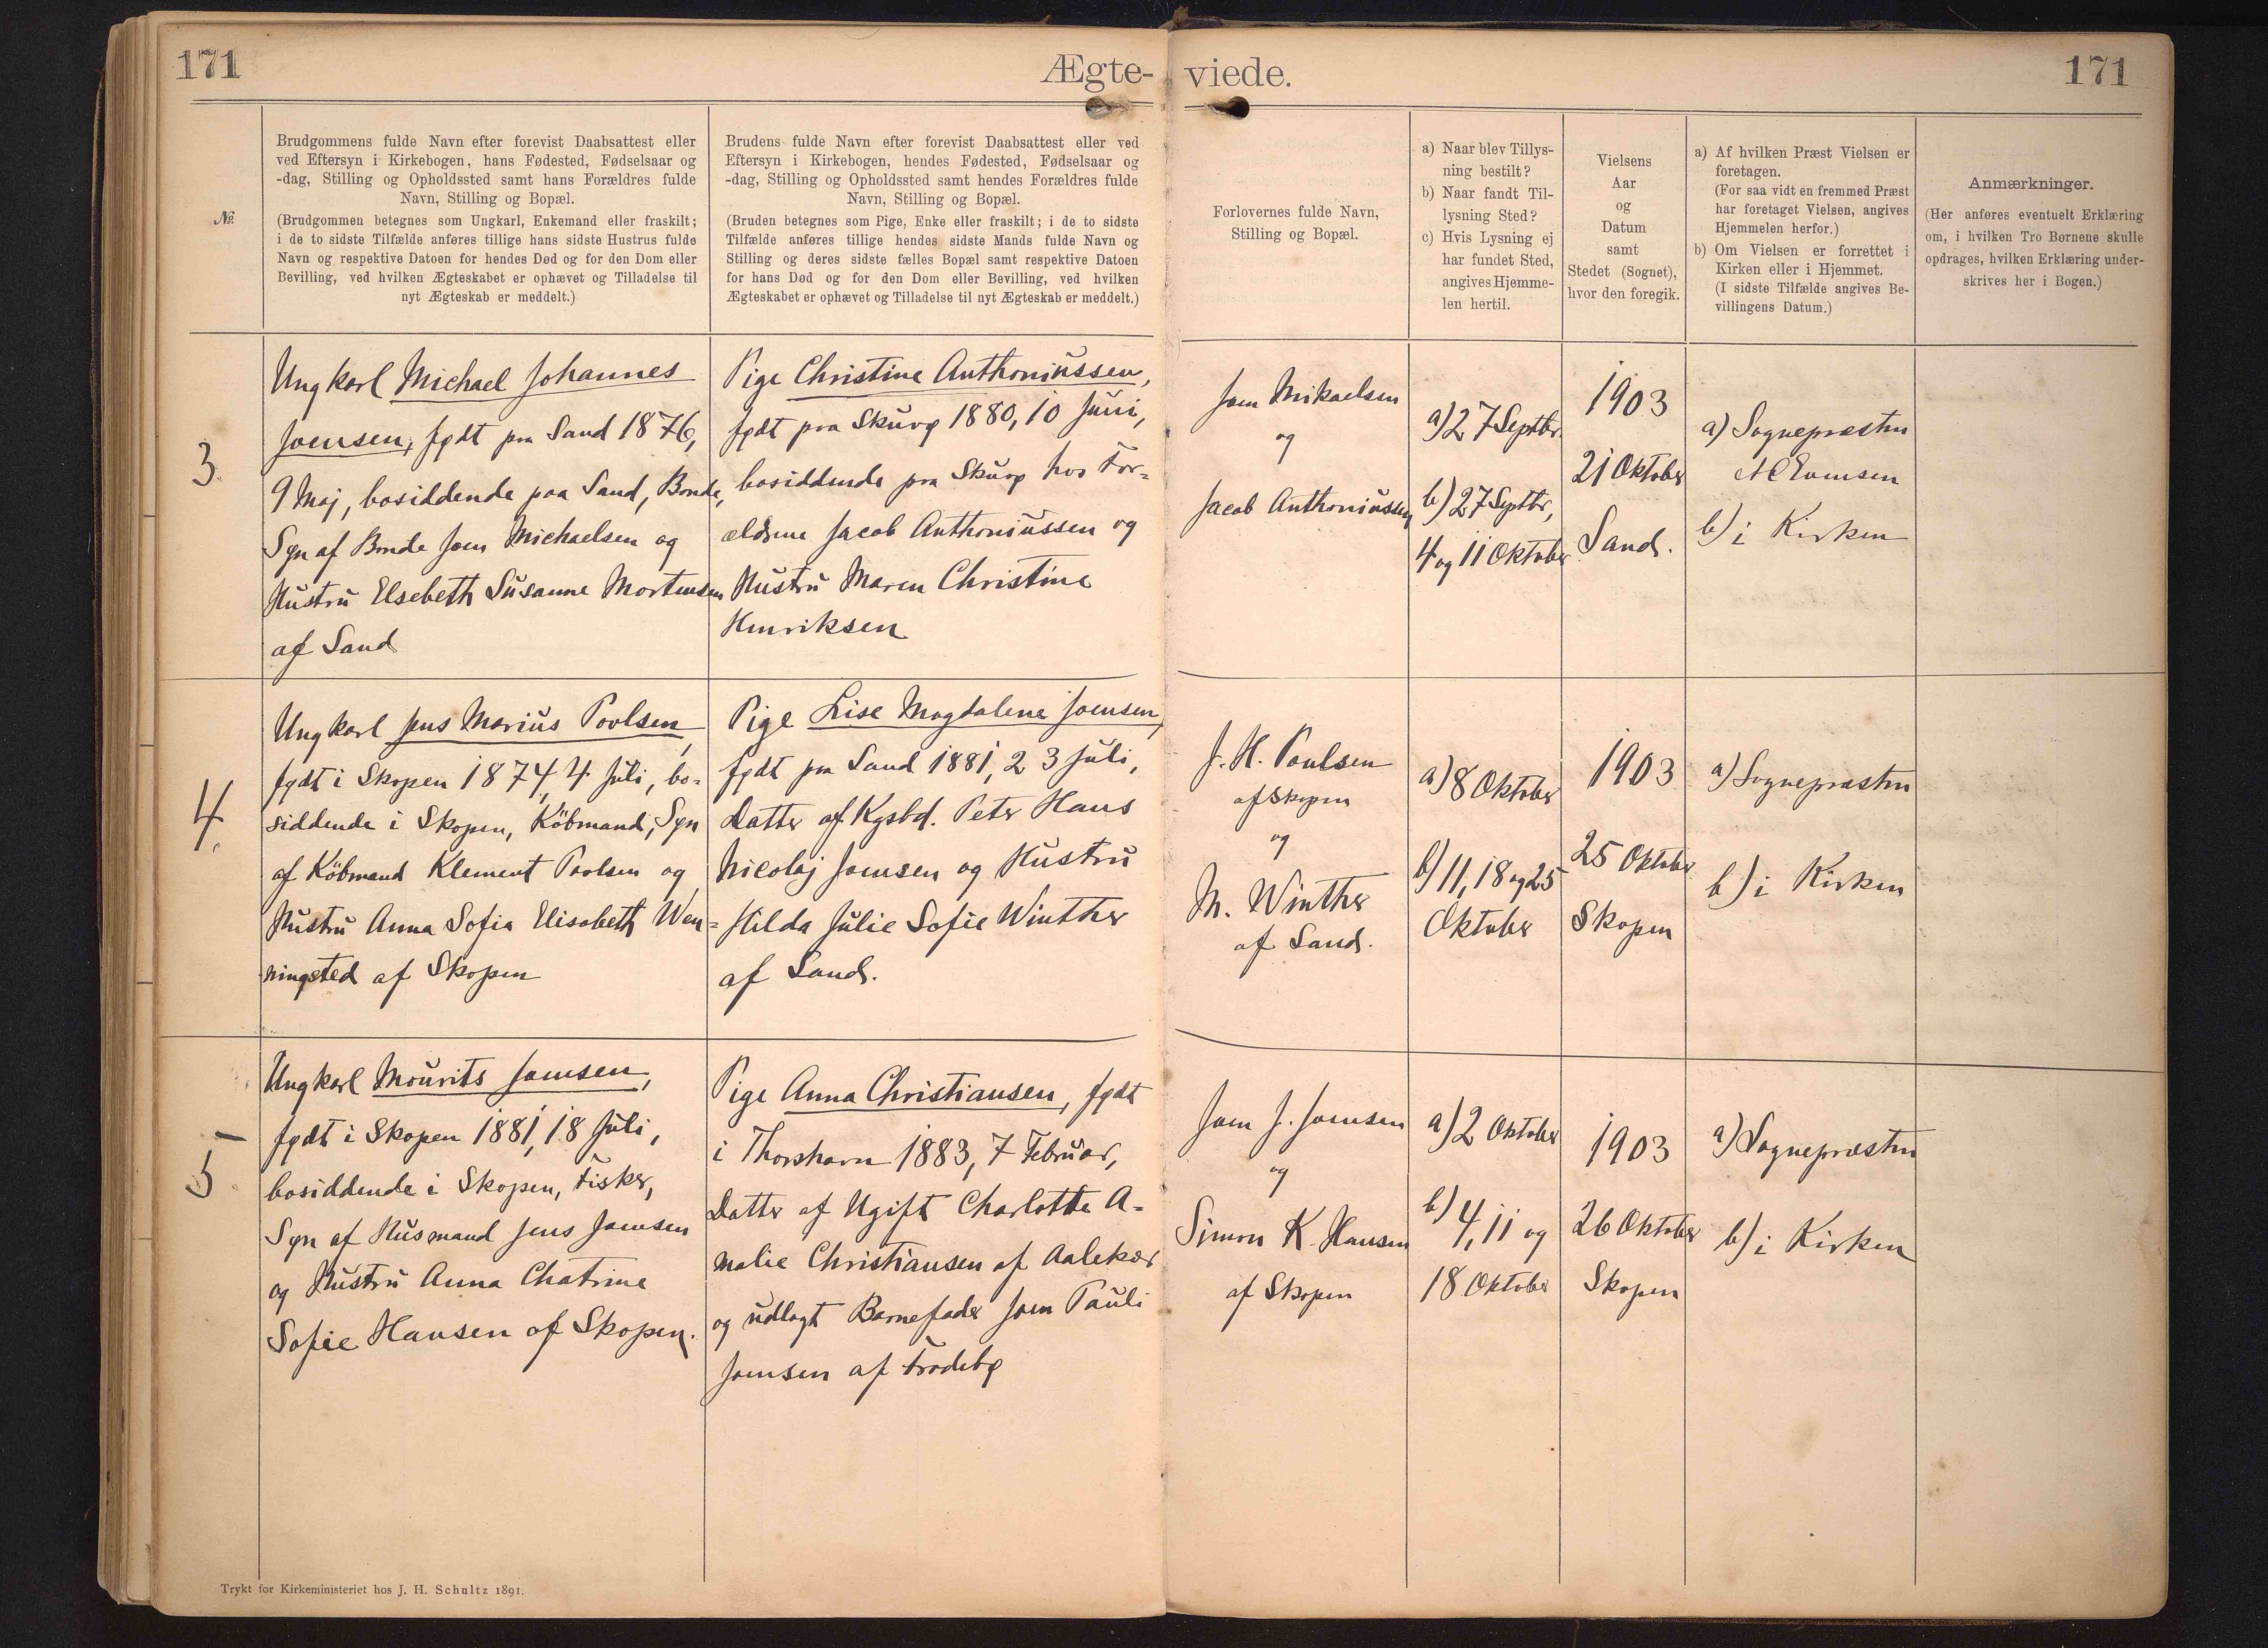 171
Ægte-
viede.
171
№
Brudgommens fulde Navn efter forevist Daabsattest eller
ved Eftersyn i Kirkebogen, hans Fødested, Fødselsaar og
-dag, Stilling og Opholdssted samt hans Forældres fulde
Navn, Stilling og Bopæl.
(Brudgommen betegnes som Ungkarl, Enkemand eller fraskilt;
i de to sidste Tilfælde anføres tillige hans sidste Hustrus fulde
Navn og respektive Datoen for hendes Død og for den Dom eller
Bevilling, ved hvilken Ægteskabet er ophævet og Tilladelse til
nyt Ægteskab er meddelt.)
Brudens fulde Navn efter forevist Daabsattest eller ved
Eftersyn i Kirkebogen, hendes Fødested, Fødselsaar og
-dag, Stilling og Opholdssted samt hendes Forældres fulde
Navn, Stilling og Bopæl.
(Bruden betegnes som Pige, Enke eller fraskilt; i de to sidste
Tilfælde anføres tillige hendes sidste Mands fulde Navn og
Stilling og deres sidste fælles Bopæl samt respektive Datoen
for hans Død og for den Dom eller Bevilling, ved hvilken
Ægteskabet er ophævet og Tilladelse til nyt Ægteskab er meddelt.)
Forlovernes fulde Navn,
Stilling og Bopæl.
a) Naar blev Tillys-
ning bestilt?
b) Naar fandt Til-
lysning Sted?
c) Hvis Lysning ej
har fundet Sted,
angives Hjemme-
len hertil.
Vielsens
Aar
og
Datum
samt
Stedet (Sognet),
hvor den foregik.
a) Af hvilken Præst Vielsen er
foretagen.
(For saa vidt en fremmed Præst
har foretaget Vielsen, angives
Hjemmelen herfor.)
b) Om Vielsen er forrettet i
Kirken eller i Hjemmet.
(I sidste Tilfælde angives Be-
villingens Datum.)
Anmærkninger.
(Her anføres eventuelt Erklæring
om, i hvilken Tro Børnene skulle
opdrages, hvilken Erklæring under-
skrives her i Bogen.)
3.
Ungkarl Michael Johannes
Joensen, født paa Sand 1876,
9 Maj, bosiddende paa Sand, Bonde,
Søn af Bonde Joen Michaelsen og
Hustru Elsebeth Susanne Mortensen
af Sand
Pige Christine Anthoniussen,
født paa Skuvø 1880, 10 Juni,
bosiddende paa Skuvø hos For-
ældrene Jacob Anthoniussen og
Hustru Maren Christine
Henriksen
Joen Mikaelsen
og
Jacob Anthoniussen
a) 27 Septbr.
b) 27 Septbr,
4 og 11 Oktober
1903
21 Oktober
Sand.
a) Sognepræsten
b) i Kirken
4.
Ungkarl Jens Marius Poulsen,
født i Skopen 1874, 4 Juli, bo-
siddende i Skopen, Købmand, Søn
af Købmand Klement Poulsen og
Hustru Anna Sofia Elisabeth Wen-
ningsted af Skopen
Pige Lise Magdalene Joensen,
født paa Sand 1881, 23 Juli,
Datter af Kgsbd. Peter Hans
Nicolaj Joensen og Hustru
Hilda Julie Sofie Winther
af Sand.
J. H. Poulsen
af Skopen
og
M. Winther
af Sand.
a) 8 Oktober
b) 11, 18 og 25
Oktober
1903
25 Oktober
Skopen
a) Sognepræsten
b) i Kirken
5.
Ungkarl Mourits Joensen,
født i Skopen 1881, 18 Juli,
bosiddende i Skopen, Fisker,
Søn af Husmand Jens Joensen
og Hustru Anna Chatrine
Sofie Hansen af Skopen.
Pige Anna Christiansen, født
i Thorshavn 1883, 7 Februar,
Datter af Ugift Charlotte A-
malie Christiansen af Aalekær
og udlagt Barnefader Joen Pauli
Joensen af Frodebø
Joen J. Joensen
og
Simon K. Hansen
af Skopen
a) 2 Oktober
b) 4, 11 og
18 Oktober
1903
26 Oktober
Skopen
a) Sognepræsten
b) i Kirken
Trykt for Kirkeministeriet hos J. H. Schultz 1891.